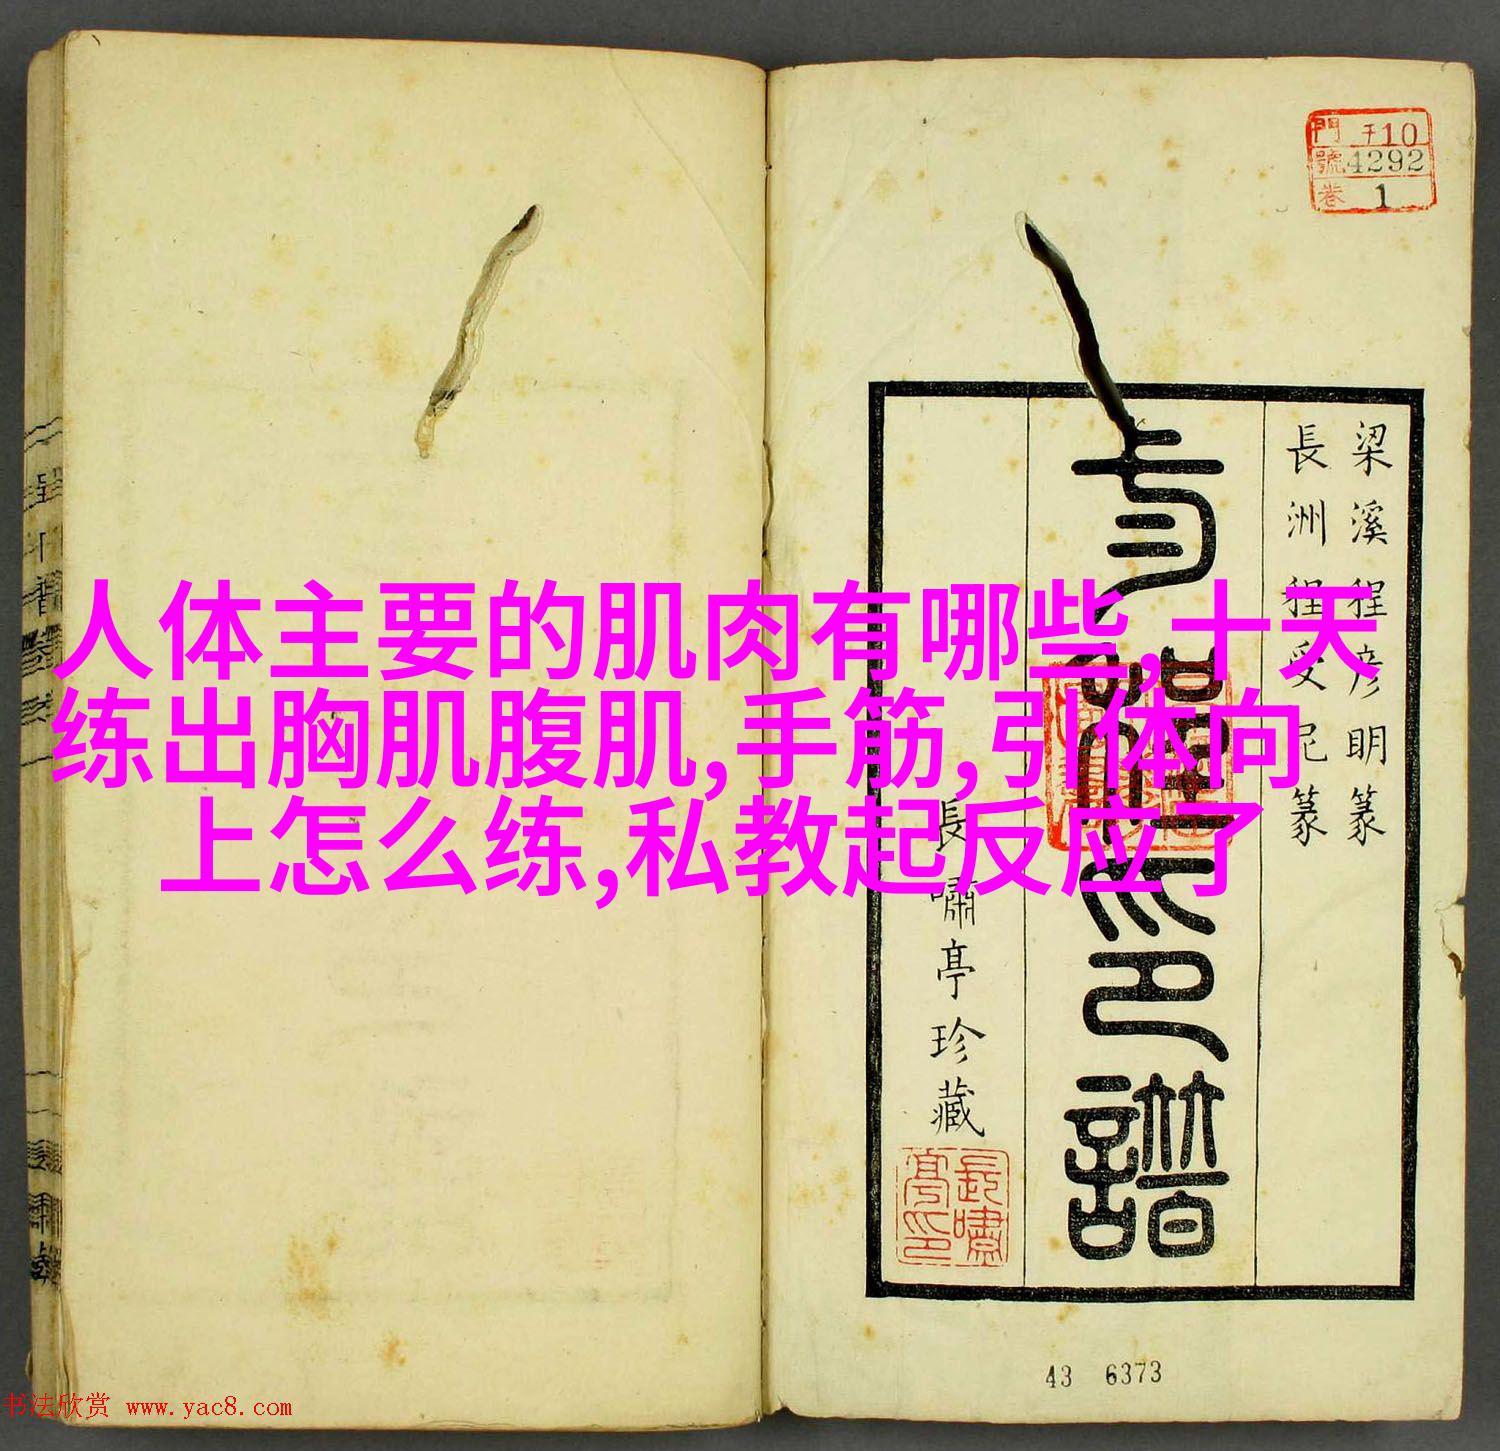 門 〒10
號 4292
卷 1
梁溪程彦明篆
長洲程受尼篆
印譜
長嘯亭珍藏
長嘯亭印
人体主要的肌肉有哪些,十天
练出胸肌腹肌,手筋,引体向
上怎么练,私教起反应了
43 6373
书法欣赏 www.yac8.com